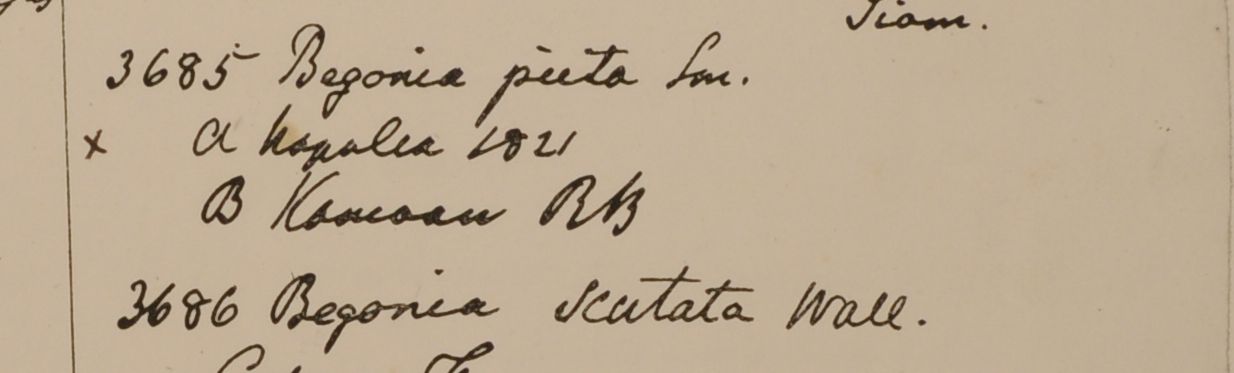 Siam.
3685 Begonia picta Sm.
x a Napalia 1821
B Kamaon RB
3686 Begonia scutata Wall.